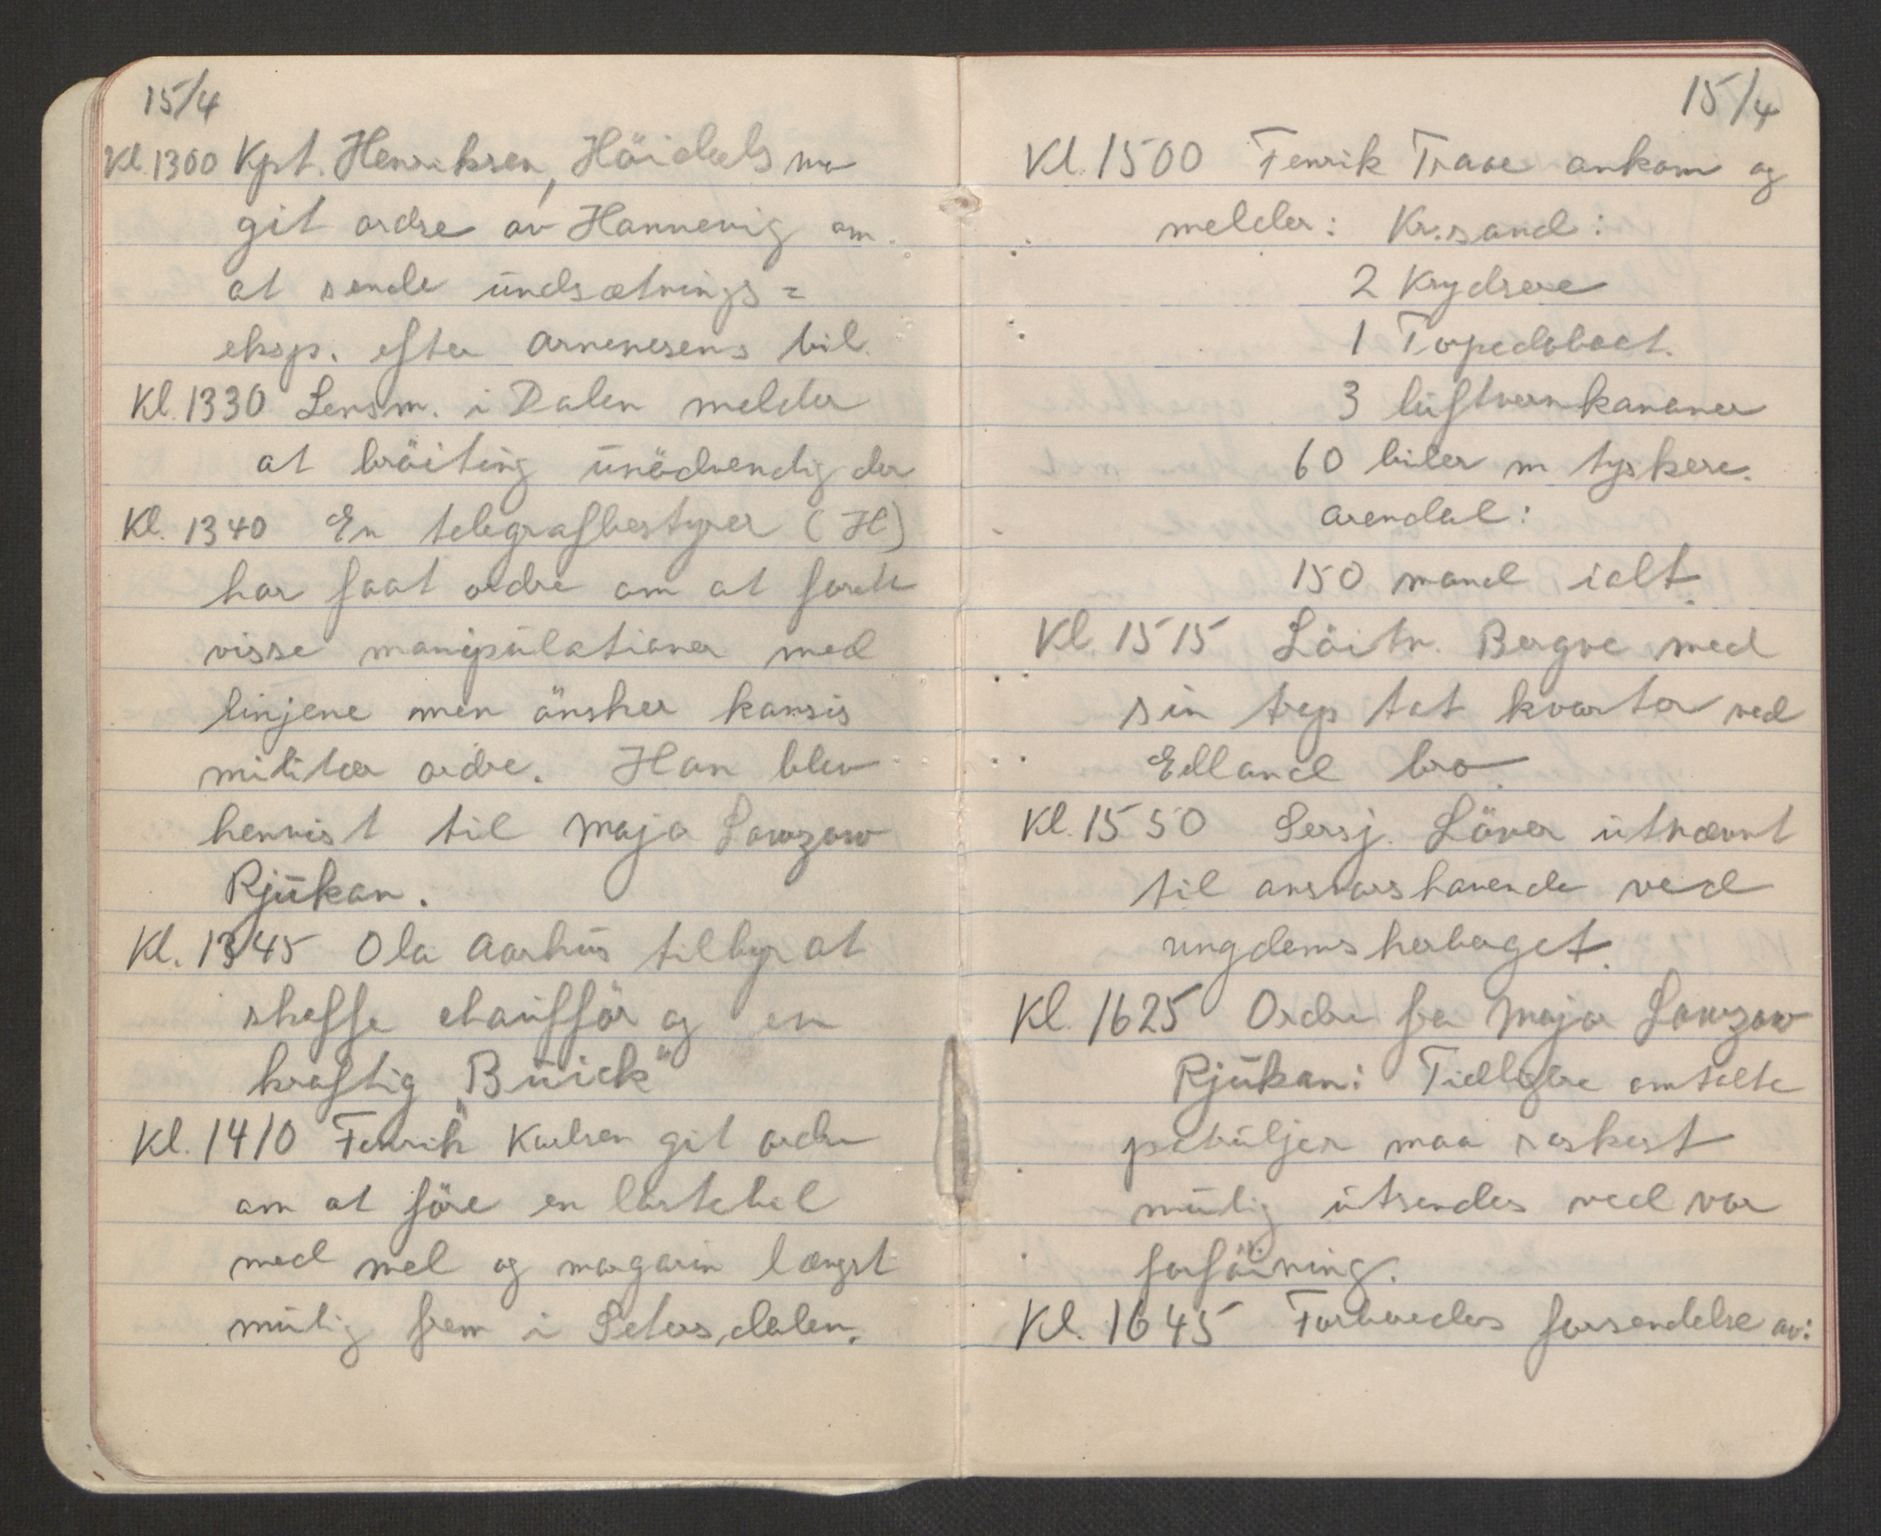 15/4
Kl. 1300 Kpt. Henriksen, Höidals mo
git ordre av Hannevig om
at sende undsætnings=
eksp. efter Arnenesens bil.
Kl. 1330 Lensm. i Dalen melder
at bröiting unödvendig der
Kl. 1340 En telegrafbestyrer (H)
har faat ordre om at foreta
visse manipulationer med
linjene men önsker
militær ordre. Han blev
henvist til Major Lowzow
Rjukan.
Kl. 1345 Ola Aarhus tilbyr at
skaffe chaufför og en
kraftig "Buick"
Kl. 1410 Fenrik Karlsen git ordre
om at före en lastebil
med mel og margarin længst
mulig frem i Setersdalen.
15/4
Kl. 1500 Fenrik Traae ankom og
melder: Kr.sand:
2 Krydsere
1 Torpedobaat.
3 luftvernkanoner
60 biler m tyskere.
Arendal:
150 mand ialt.
Kl. 1515 Löitn. Bergve med
sin trop tat kvarter ved
Edland bro.
Kl. 1550 Sersj. Löver utnævnt
til ansvarshavende ved
ungdomsherberget.
Kl. 1625 Ordre fra Major Lowzow
Rjukan: Tidligere omtalte
patruljer maa raskest
mulig utsendes ved vor
forföining.
Kl. 1645 Forberedes forsendelse av: